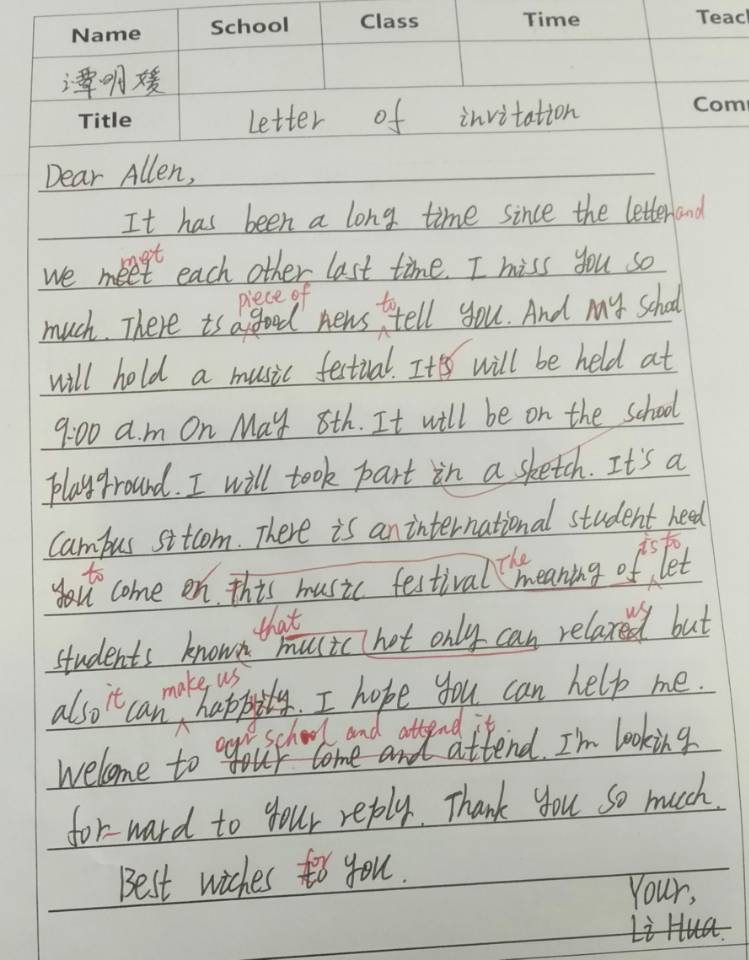 Name School Class Time Teac
谭明媛
Title Letter of invitation Com
Dear Allen,
It has been a long time since the letter and
met
we meet each other last time. I miss you so
piece of to
much. There is a good news tell you. And My School
will hold a music festival. It's will be held at
9:00 a.m On May 8th. It will be on the school
playground. I will took part in a sketch. It's a
campus sitcom. There is an international student need
to The is to
you come on this music festival meaning of let
that us
students known music not only can relaxed but
it make us
also can happily. I hope you can help me.
our school and attend it
Welcome to your come and attend. I'm looking
for-ward to your reply. Thank you so much.
for
Best wiches to you.
Your,
Li Hua.